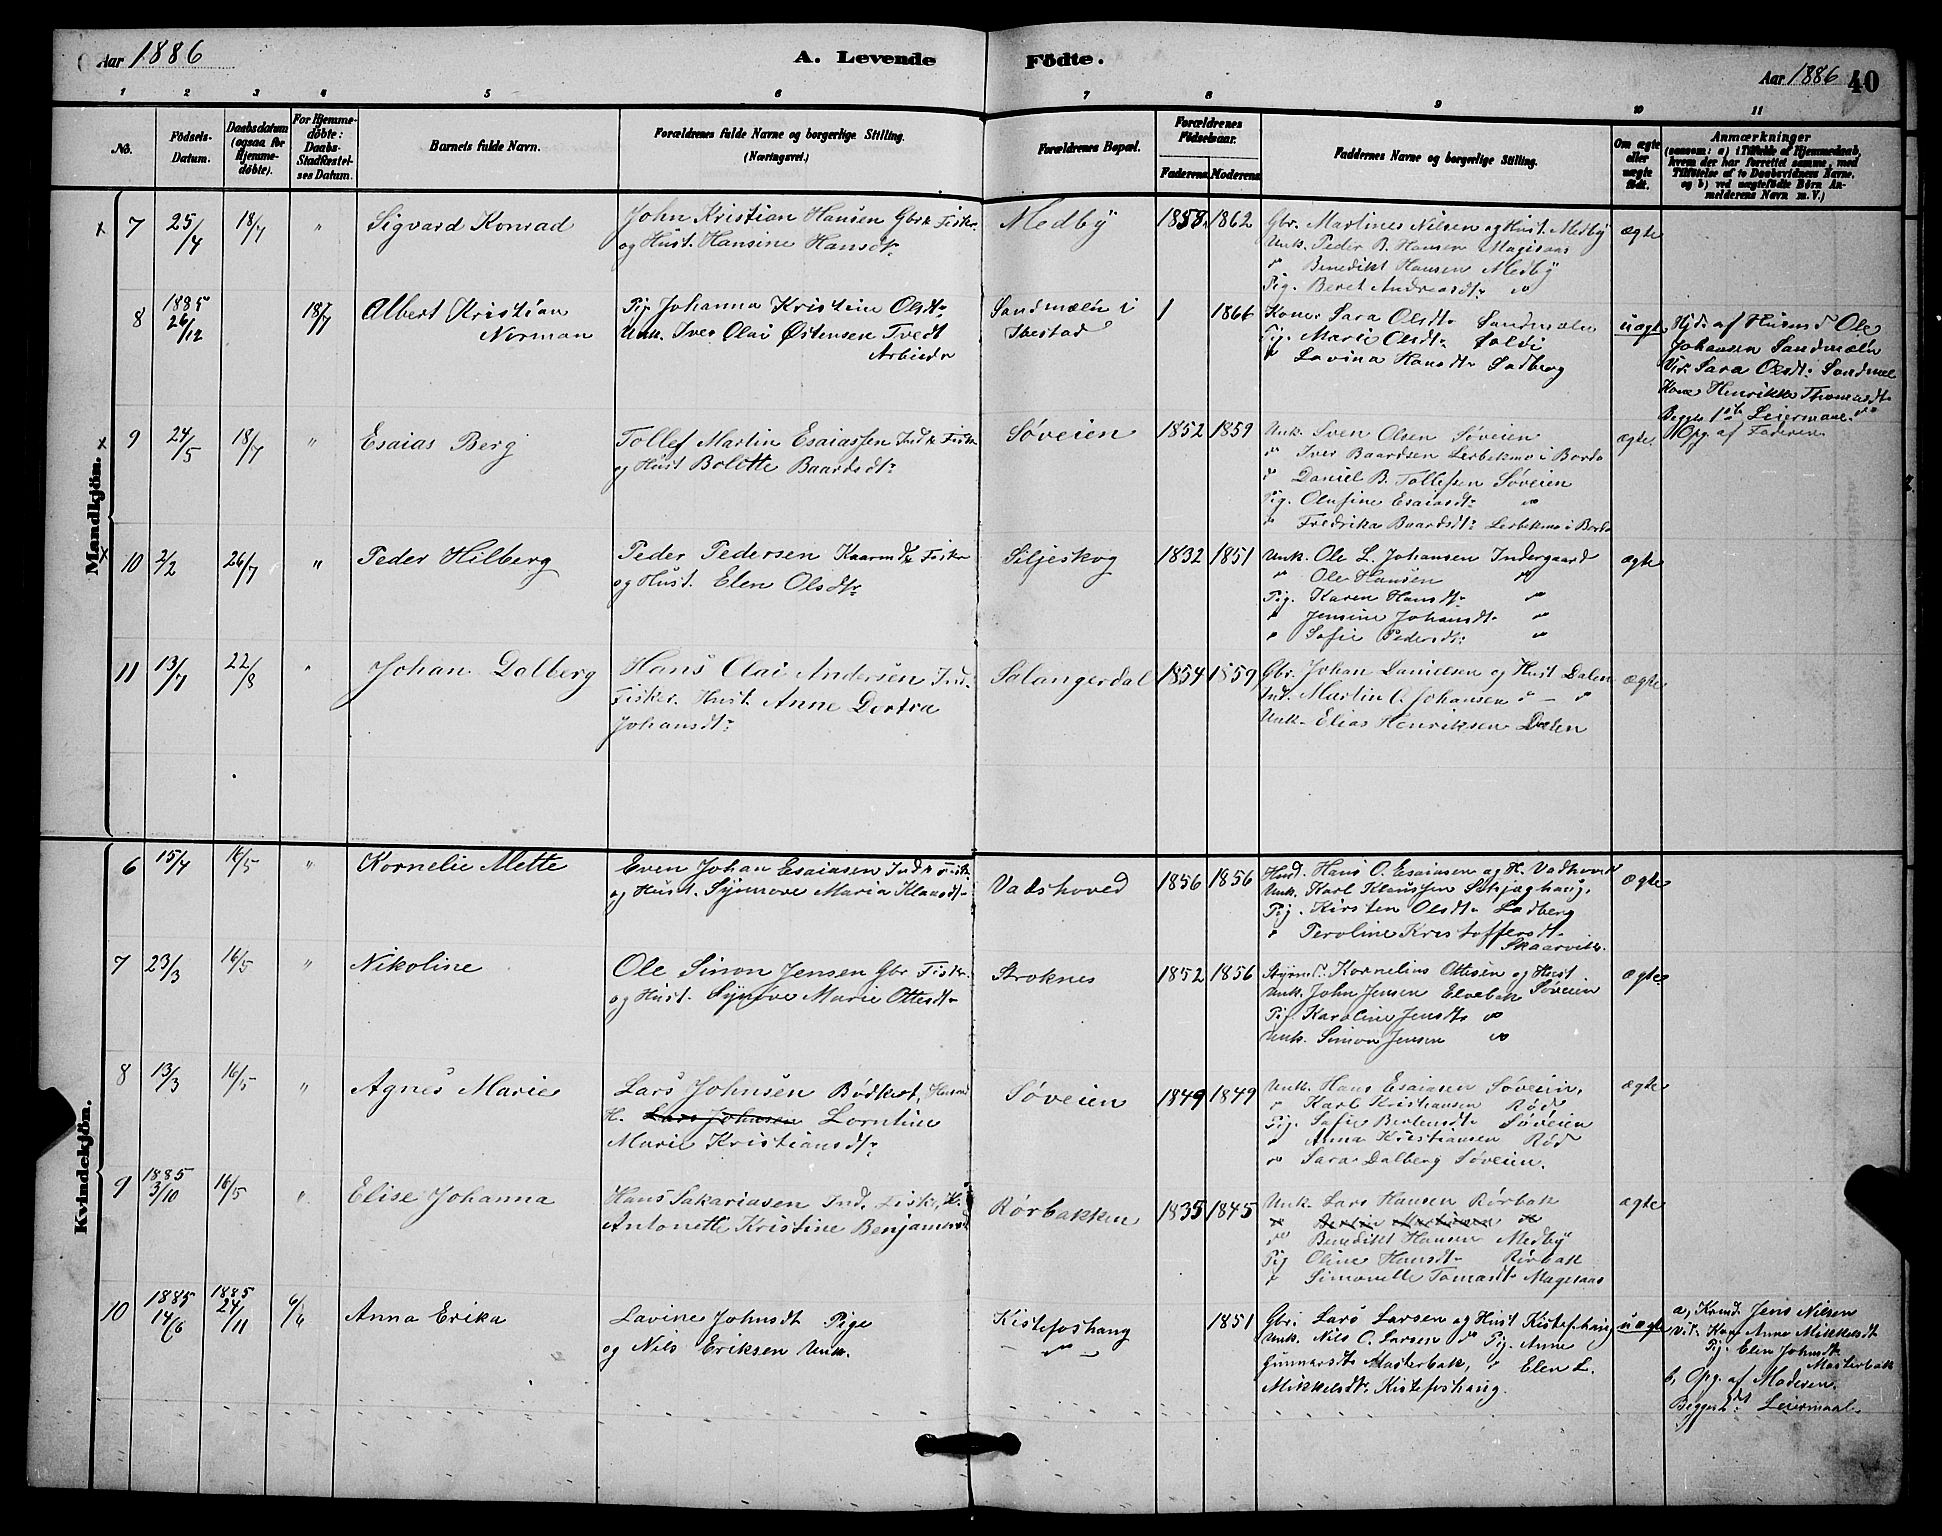 Aar 1886 A. Levende Födte. Aar 1886 40
1 2 3 4 5 6 7 8 9 10 11
No.
Födsels-Datum.
Daabsdatum (ogsaa for Hjemme-døbte).
For Hjemme-døbte: Daabs-Stadfæstel-ses Datum.
Barnets fulde Navn.
Forældrenes fulde Navne og borgerlige Stilling.
(Næringsvei.)
Forældrenes Bopæl.
Forældrenes Födselsaar.
Faderens Moderens
Faddernes Navne og borgerlige Stilling.
Om ægte eller uægte født.
Anmærkninger
(saasom: a) i Tilfælde af Hjemmedaab,
hvem der har forrettet samme, med
Tilföielse af to Daabsvidners Navne,
og b) ved uægtefødte Börn An-
melderens Navn m. V.)
Mandkjön.
7 25/4 18/7 " Sigvard Konrad
John Kristian Hansen Gbr. Fisker
og Hust. Hansine Hansdtr
Medby 1858 1862
Gbr. Martines Nilsen og Hust. Medby
Unk. Peder B. Hansen Magisaas
" Benedikt Hansen Medby
Pig. Beret Andreasdtr "
ægte
8 1885 26/12 18/7 Albert Kristian
Norman
Pig. Johanna Kristine Olsdtr
Unk. Iver Olai Østensen Tvedt
Arbieder
Sandmæln i
Ibestad
1 1866
Kone Sara Olsdtr Sandmæln
Pig. Marie Olsdtr Soldi
" Lavina Hansdtr Ladberg
uægte
Hjd. af Husmd Ole
Johansen Sandmæln
Vid. Sara Olsdtr Sandmæl
Kone Henrikke Thomasdtr
Begges 1ste Leiermaal
Opg. af Faderen
9 24/5 18/7 " Esaias Berg
Tollef Martin Esaiassen Ind. Fisker
og Hust Bolette Baardsdtr
Søveien 1852 1859
Unk. Sven Olsen Søveien
" Iver Baardsen Lerbekmo i Bardo
" Daniel B. Tollefsen Søveien
Pig. Olufine Esaiasdtr "
" Fredrika Baardsdtr Lerbekmo i Bardo
ægte
10 2/2 26/7 " Peder Hilberg
Peder Pedersen Fisker
og Hust. Elen Olsdtr
Siljeskog 1832 1851
Unk. Ole L. Johansen Indergaard
" Ole Hansen "
Pig. Karen Hansdtr "
" Jensine Johansdtr "
" Sofie Pedersdtr "
ægte
11 13/7 22/8 " Johan Dalberg
Hans Olai Andersen Ind.
Fisker. Hust. Anne Dortea
Johansdtr
Salangerdal 1854 1859
Gbr. Johan Danielsen og Hust Dalen
Ind. Martin C. Johansen " — "
Unk. Elias Henriksen Dalen
ægte
Kvindekjön.
6 15/4 16/5 " Kornelie Mette
Even Johan Esaiasen Ind. Fisk
og Hust. Synnøve Maria Klausdtr
Vadshoved 1856 1856
Husd. Hans O. Esaiasen og H. Vadhoved
Unk. Karl Klaussen
Pig. Kirsten Olsdtr Ladberg
" Peroline Kristoffersdtr
Skaarvik
ægte
7 23/3 16/5 " Nikoline
Ole Simon Jensen Gbr Fisker
og Hust. Synøve Marie Ottesdtr
Stroknes 1852 1856
Kornelius Ottesen og Hust
Søveien
Unk. John Jensen Elvebak
Pig. Karoline Jensdtr "
Unk. Simon Jensen "
ægte
8 13/3 16/5 " Agnes Marie
Lars Johnsen Bødker, Husmd
H. Lars Johnsen Lorntine
Marie Kristiansdtr
Søveien 1849 1849
Unk. Hans Esaiasen Søveien,
" Karl Kristiansen Rød
Pig. Sofie Berteusdtr Søveien
" Anna Kristiansen Rød
" Sara Dalberg Søveien.
ægte
9 1885 3/10 16/5 " Elise Johanna
Hans Sakariasen Ind. Fisk. H.
Antonette Kristine Benjaminsd
Rørbakken 1835 1845
Unk. Lars Hansen Rørbak
" Benedikt Hansen Medby
Pig Oline Hansdtr Rørbak
" Simonelle Tomasdtr Magesaas
ægte
10 1885 14/6 1885 24/11 6/6 Anna Erika
Lavine Johnsdt Pige
og Nils Eriksen Unk.
Kistefoshaug
— " —
1851
Gbr. Lars Larsen og Hust Kistefhaug
Unk. Nils C. Larsen " Pig. Anne
Gunnarsdtr Masterbak, " Elen L.
Mikkelsdtr Kistefoshaug.
uægte
a, Jens Nilsen
Vid. Kone Anne Mikkelsdt
Pig. Elen Johnsdtr
Masterbak
b, Opg. af Moderen.
Begges 2det Leiermaal.